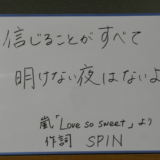 信じることがすべて
明けない夜はないよ
嵐「Love so sweet」より
作詞 SPIN